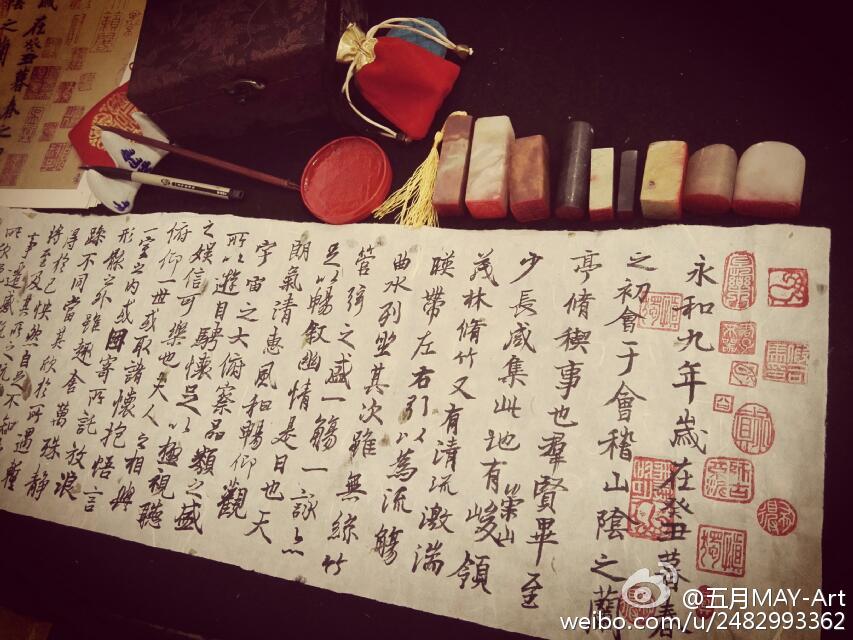 永和九年歲在癸丑暮春
之初會于會稽山陰之蘭
亭脩稧事也羣賢畢至
少長咸集此地有崇山峻領
茂林脩竹又有清流激湍
暎帶左右引以為流觴
曲水列坐其次雖無絲竹
管弦之盛一觴一詠亦
足以暢叙幽情是日也天
朗氣清惠風和暢仰觀
宇宙之大俯察品類之盛
所以遊目騁懷足以極視聽
之娛信可樂也夫人之相與
俯仰一世或取諸懷抱悟言
一室之内或因寄所託放浪
形骸之外雖趣舍萬殊靜
躁不同當其欣於所遇
得於己快然自足不知
將至及其所之
@五月MAY-Art
weibo.com/u/2482993362